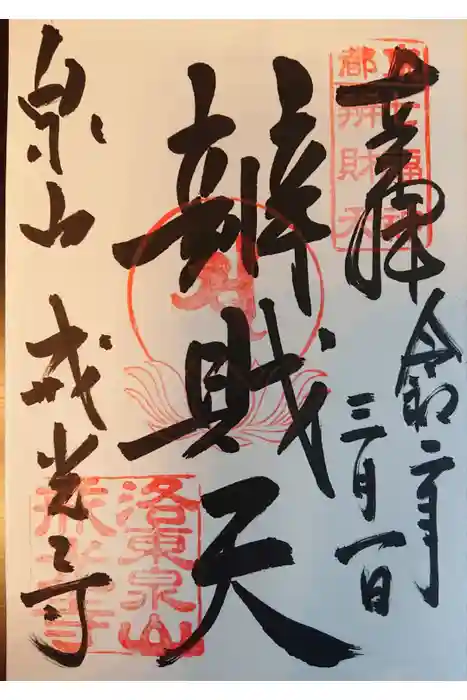 奉拝
令和二年
三月一日
辨財天
泉山 戒光寺
都七福神
辨財天
洛東泉山
戒光寺